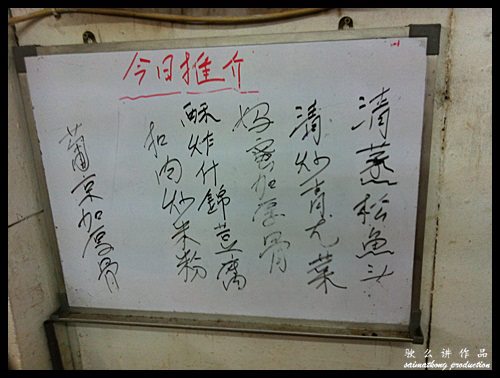 今日推介
清蒸松魚头
清炒青尤菜
妈蜜加厚骨
酥炸什錦荳腐
扣肉炒米粉
葡京加厚骨
驶么讲作品
saimatkong production